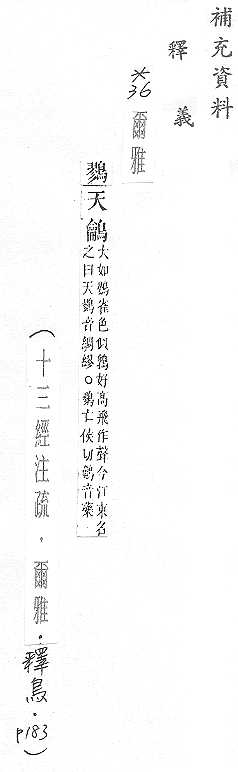 補充資料
釋義
*36 爾雅
鷚天鸙
大如鷃雀色似鶉好高飛作聲今江東名
之曰天鷚音綢繆○鷚亡侯切鸙音藥
(十三經注疏．爾雅．釋鳥．p183)